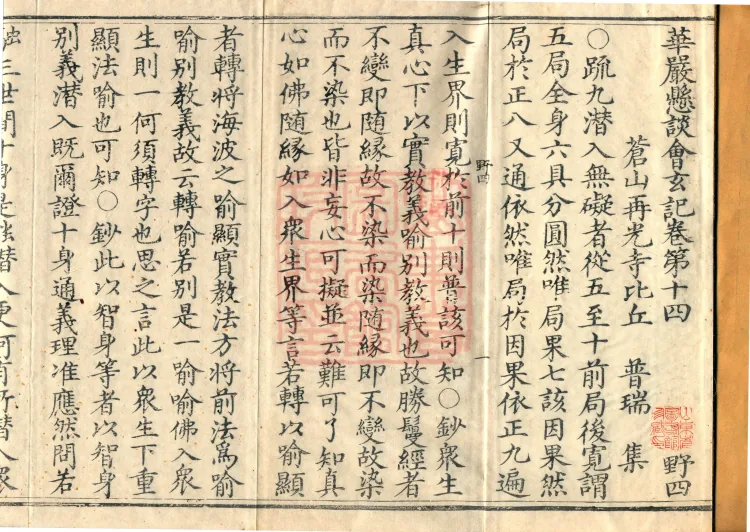 華嚴懸談會玄記卷第十四
蒼山再光寺比丘 普瑞 集 野四
〇疏九潜入無礙者從五至十前局後寬謂
五局全身六具分圓然唯局果七該因果然
局於正八又通依然唯局於因果依正九遍
入生界則寬於前十則普該可知〇鈔衆生
野四 一
真心下以實教義喻別教義也故勝鬘經者
不變即隨縁故不染而染隨縁即不變故染
而不染也皆非妄心可擬並云難可了知真
心如佛隨縁如入衆生界等言若轉以喻顯
者轉將海波之喻顯實教法方將前法爲喻
喻別教義故云轉喻若別是一喻喻佛入衆
生則一何須轉字也思之言此以衆生下重
顯法喻也可知〇鈔此以智身等者以智身
別義潜入既爾證十身通義理准應然問若
融三世間十身是